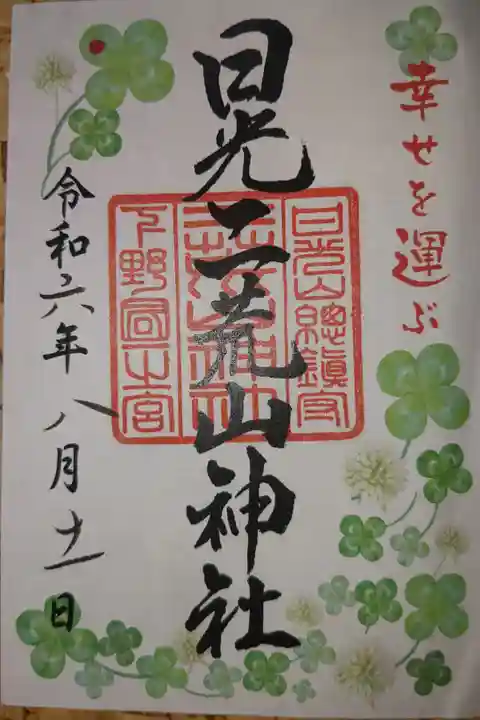 幸せを運ぶ
日光二荒山神社
日光山總鎮守
下野國一之宮
令和六年八月十一日